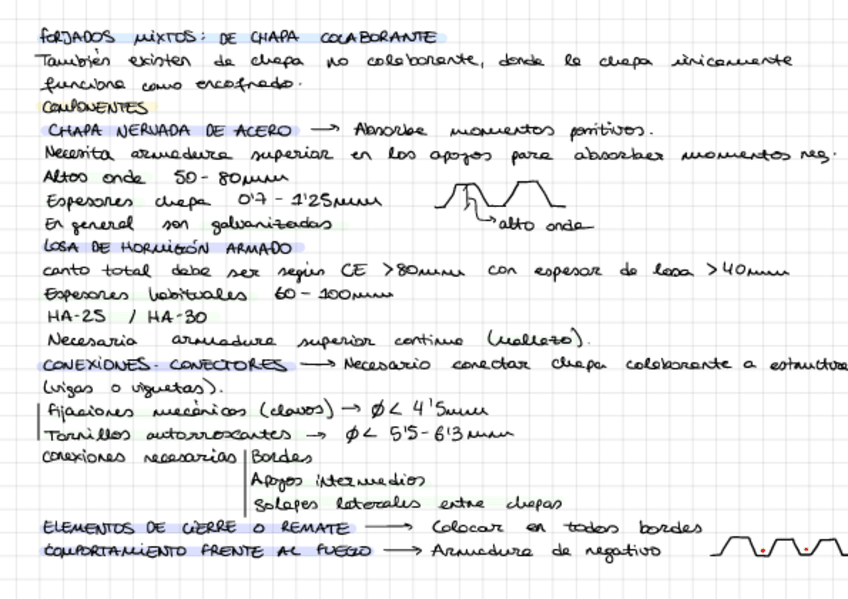 FORJADOS MIXTOS: DE CHAPA COLABORANTE
También existen de chapa no colaborante, donde la chapa únicamente
funciona como encofrado.
COMPONENTES
CHAPA NERVADA DE ACERO → Absorbe momentos positivos.
Necesita armadura superior en los apoyos para absorber momentos neg.
Altos onda 50-80mm
Espesores chapa 0'7 - 1'25mm
En general son galvanizadas
alto onda
LOSA DE HORMIGÓN ARMADO
canto total debe ser según CE >80mm con espesor de losa >40mm
Espesores habituales 60-100mm
HA-25 / HA-30
Necesaria armadura superior continua (mallazo).
CONEXIONES. CONECTORES → Necesario conectar chapa colaborante a estructura
(vigas o viguetas).
Fijaciones mecánicas (clavos) → Ø< 4'5mm
Tornillos autorroscantes → Ø< 5'5-6'3mm
conexiones necesarias | Bordes
Apoyos intermedios
Solapes laterales entre chapas
ELEMENTOS DE CIERRE O REMATE → Colocar en todos bordes
COMPORTAMIENTO FRENTE AL FUEGO → Armadura de negativo